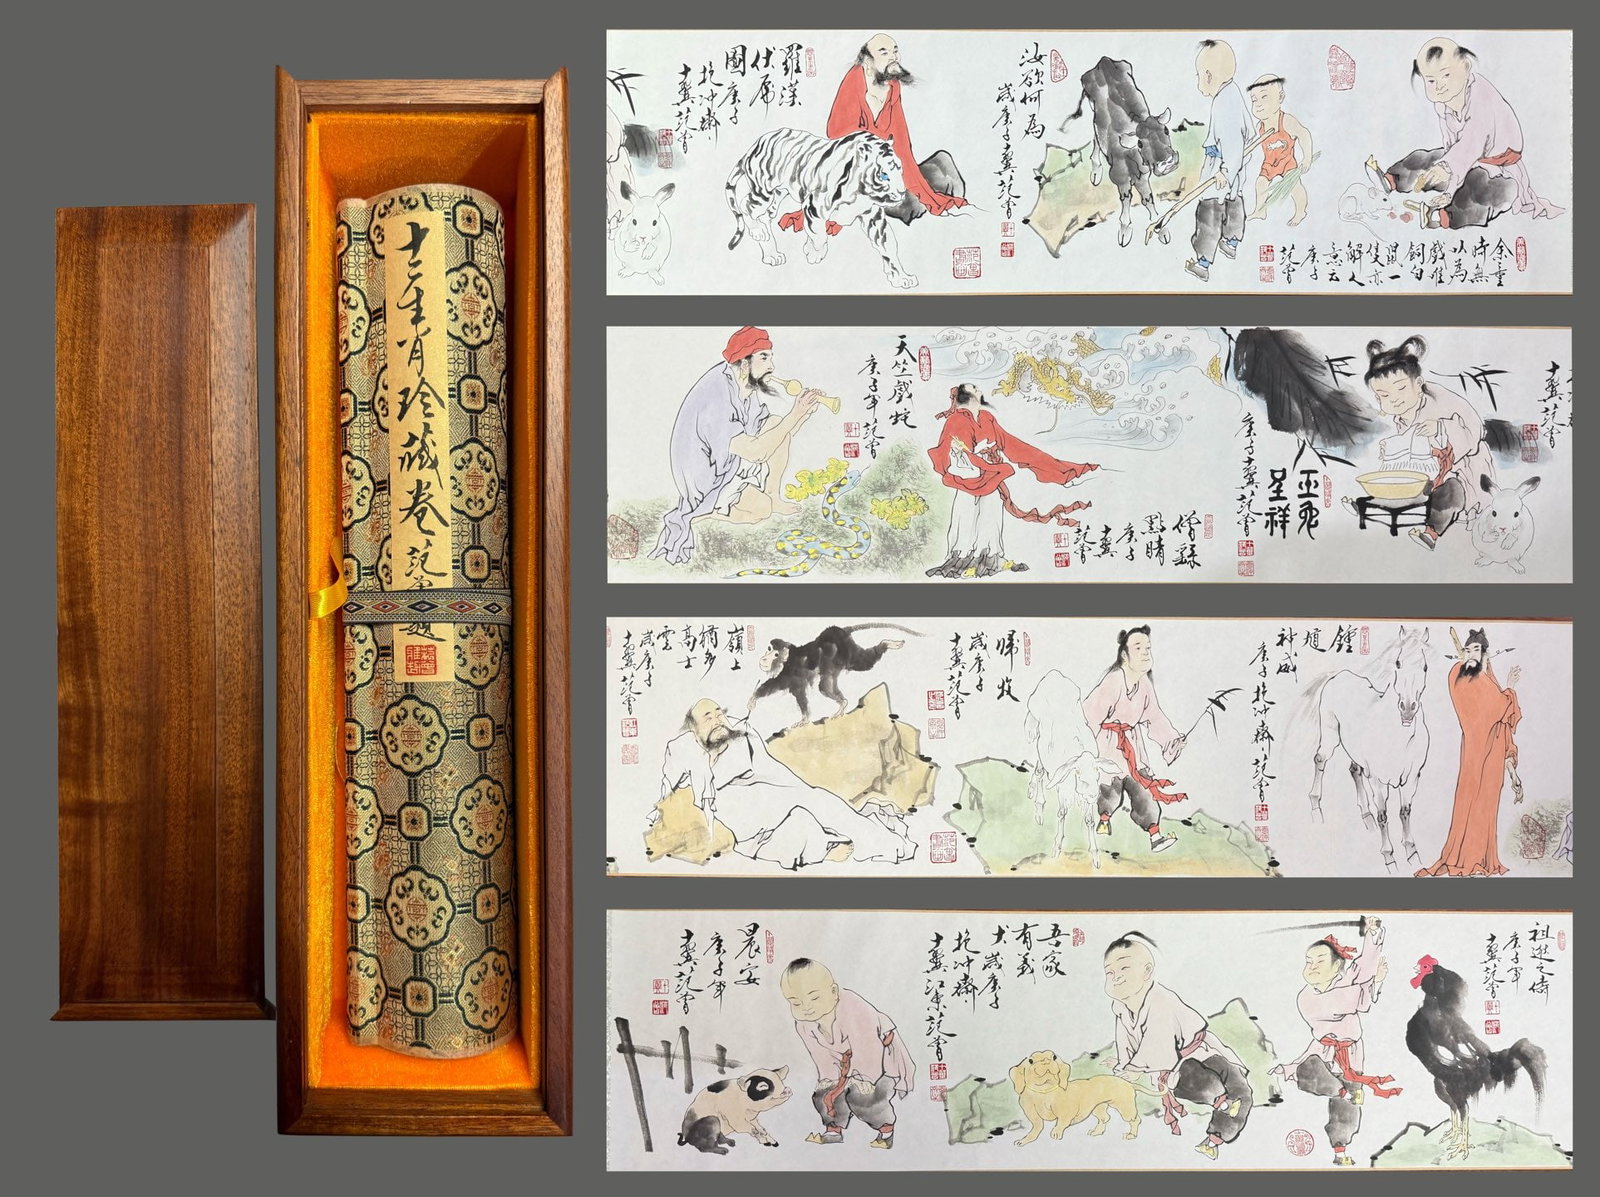 十二生肖珍藏卷
范曾題
余童
時無
以為
戲唯
飼白
鼠一
隻亦
解人
意云
庚子
范曾
汝欲何為
歲庚子十翼范曾
羅漢
伏虎
圖庚子
抱冲齋
十翼范曾
玉兔
呈祥
庚子十翼范曾
十翼范曾
僧繇
點睛
庚子
十翼
范曾
天竺戲蛇
庚子年
十翼范曾
鍾馗
神威
庚子抱冲齋范曾
歸牧
歲庚子
十翼范曾
嶺上
猶多
高士
雲
歲庚子
十翼范曾
祖逖之儔
庚子年
十翼范曾
吾家
有義
犬歲庚子
抱冲齋
十翼江東范曾
晨安
庚子年
十翼范曾